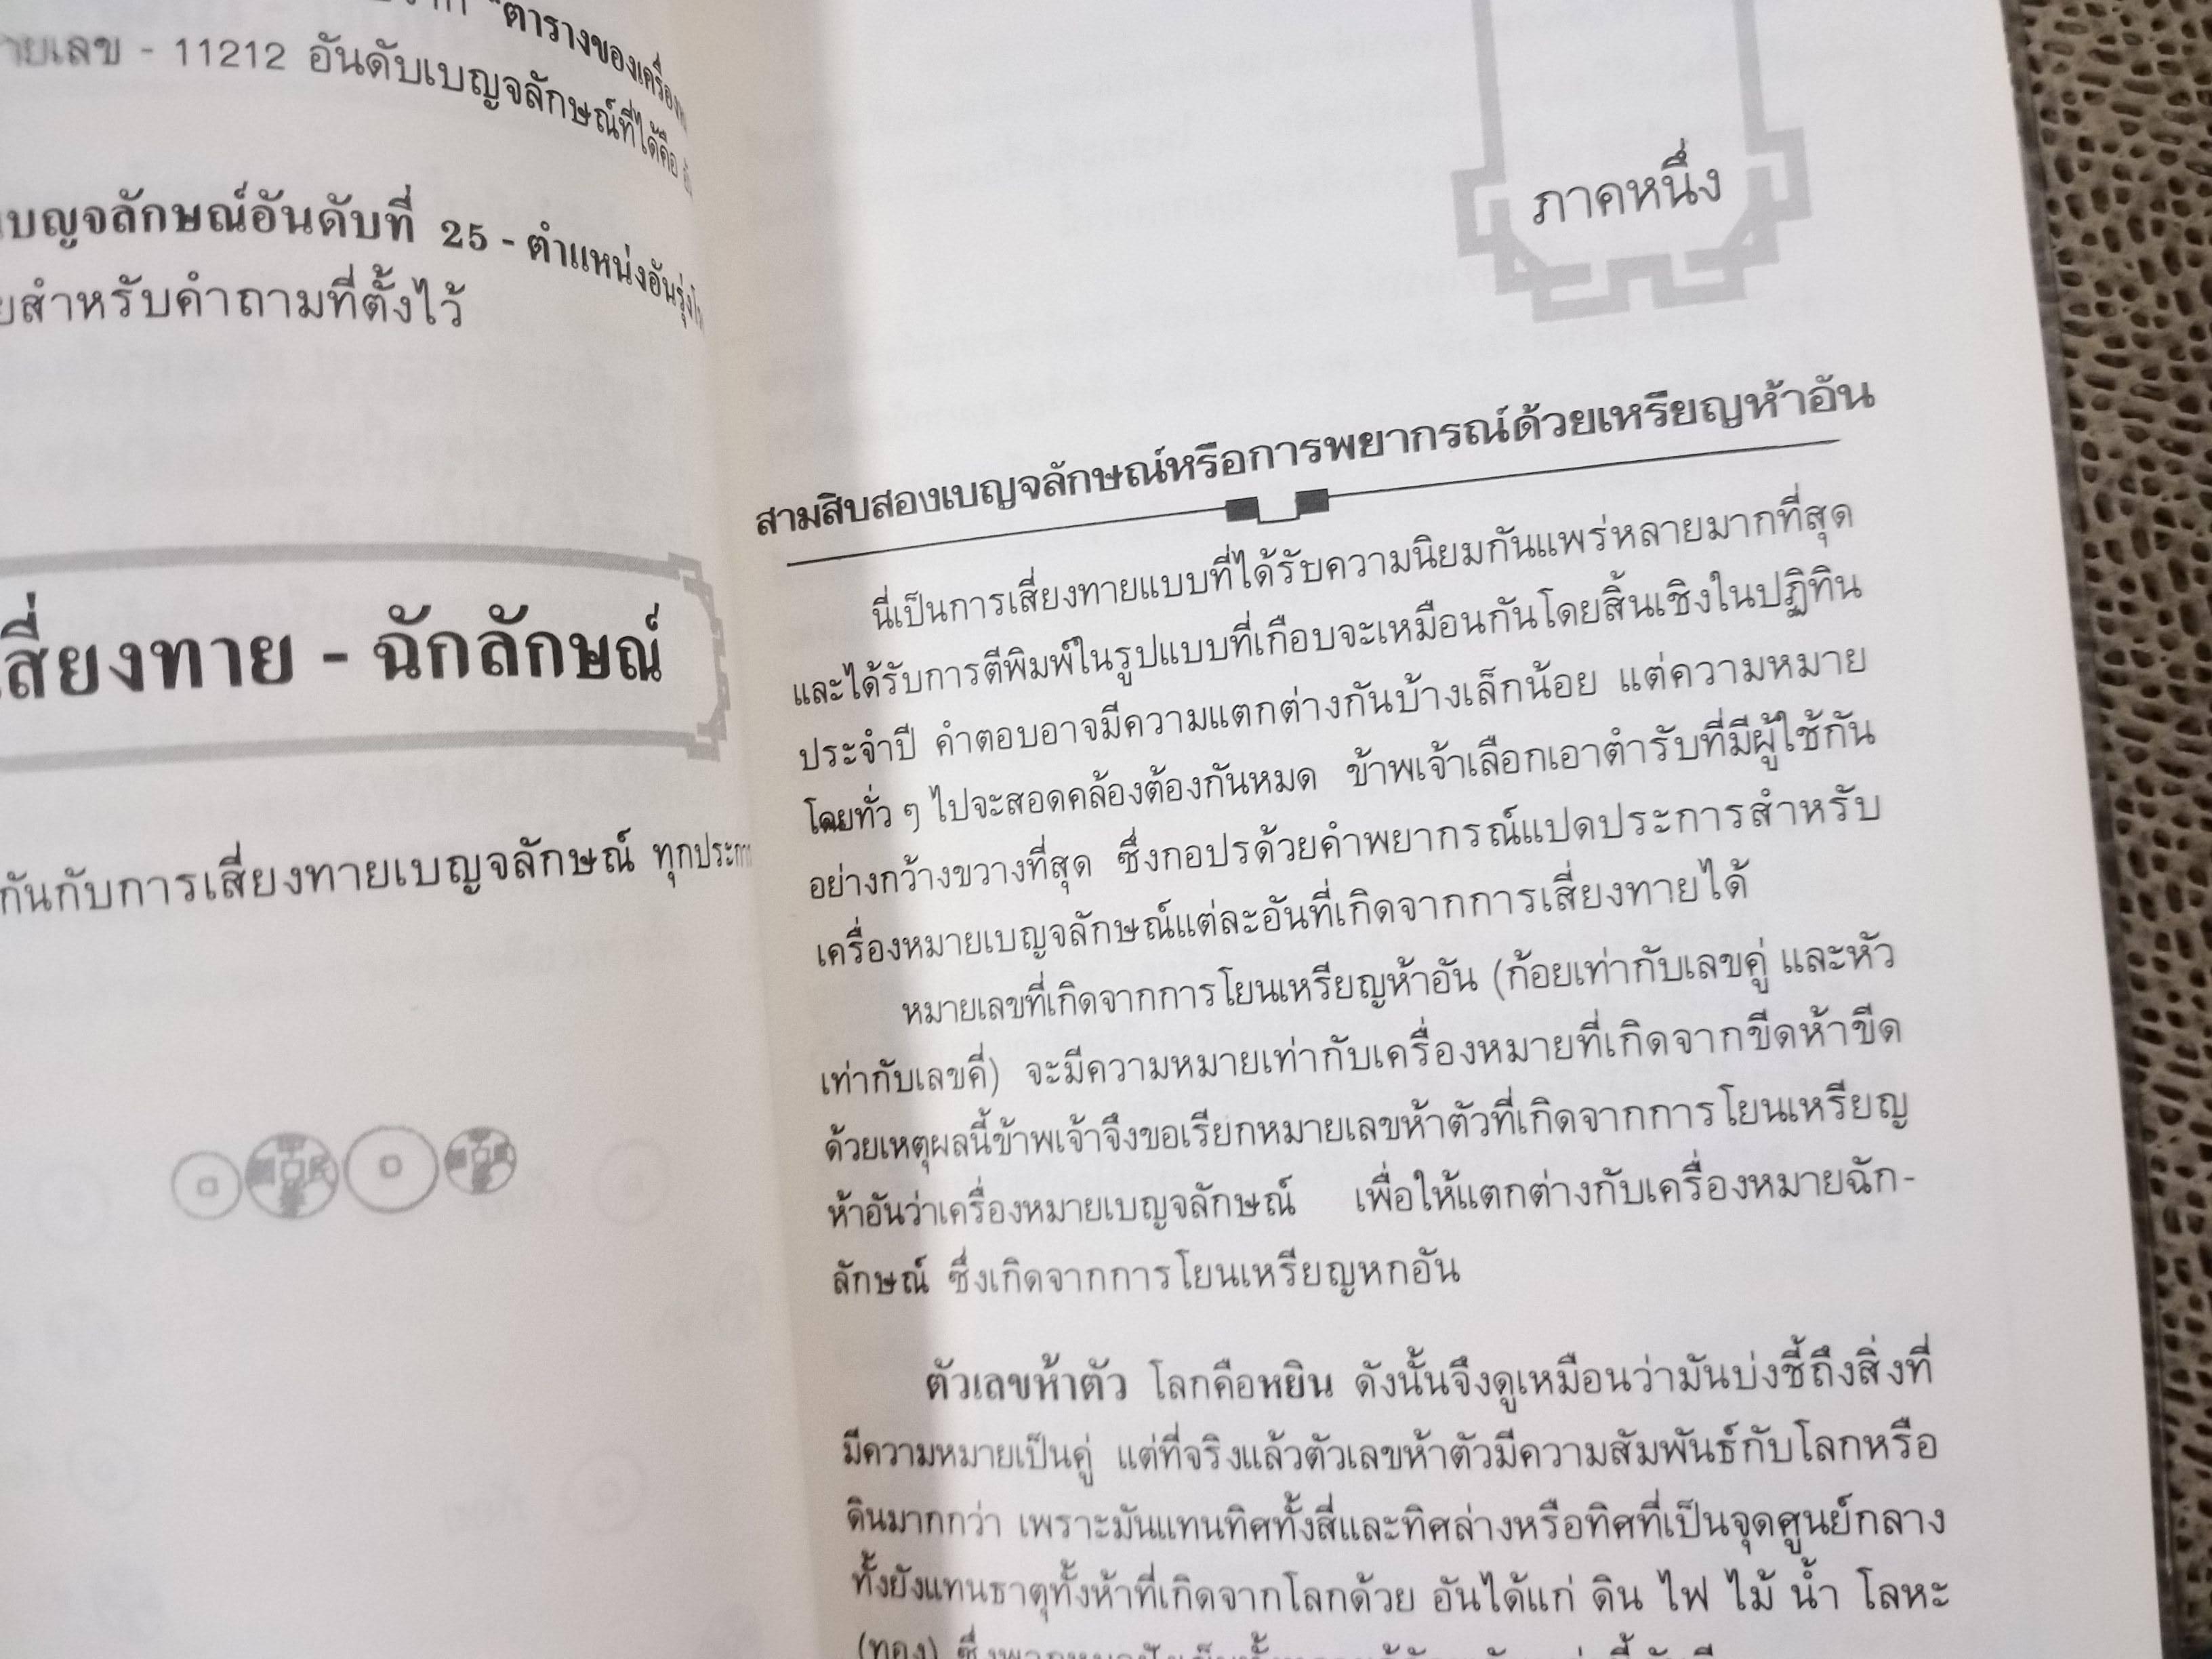 "ตารางของเครื่อง
ายเลข - 11212 อันดับเบญจลักษณ์ที่ได้คือ
เบญจลักษณ์อันดับที่ 25 - ตำแหน่งอันรุ่งโร
ยสำหรับคำถามที่ตั้งไว้
เสี่ยงทาย - ฉักลักษณ์
กันกับการเสี่ยงทายเบญจลักษณ์ ทุกประกา
ภาคหนึ่ง
สามสิบสองเบญจลักษณ์หรือการพยากรณ์ด้วยเหรียญห้าอัน
นี่เป็นการเสี่ยงทายแบบที่ได้รับความนิยมกันแพร่หลายมากที่สุด
และได้รับการตีพิมพ์ในรูปแบบที่เกือบจะเหมือนกันโดยสิ้นเชิงในปฏิทิน
ประจำปี คำตอบอาจมีความแตกต่างกันบ้างเล็กน้อย แต่ความหมาย
โดยทั่ว ๆ ไปจะสอดคล้องต้องกันหมด ข้าพเจ้าเลือกเอาตำรับที่มีผู้ใช้กัน
อย่างกว้างขวางที่สุด ซึ่งกอปรด้วยคำพยากรณ์แปดประการสำหรับ
เครื่องหมายเบญจลักษณ์แต่ละอันที่เกิดจากการเสี่ยงทายได้
หมายเลขที่เกิดจากการโยนเหรียญห้าอัน (ก้อยเท่ากับเลขคู่ และหัว
เท่ากับเลขคี่) จะมีความหมายเท่ากับเครื่องหมายที่เกิดจากขีดห้าขีด
ด้วยเหตุผลนี้ข้าพเจ้าจึงขอเรียกหมายเลขห้าตัวที่เกิดจากการโยนเหรียญ
ห้าอันว่าเครื่องหมายเบญจลักษณ์ เพื่อให้แตกต่างกับเครื่องหมายฉัก-
ลักษณ์ ซึ่งเกิดจากการโยนเหรียญหกอัน
ตัวเลขห้าตัว โลกคือหยิน ดังนั้นจึงดูเหมือนว่ามันบ่งชี้ถึงสิ่งที่
มีความหมายเป็นคู่ แต่ที่จริงแล้วตัวเลขห้าตัวมีความสัมพันธ์กับโลกหรือ
ดินมากกว่า เพราะมันแทนทิศทั้งสี่และทิศล่างหรือทิศที่เป็นจุดศูนย์กลาง
ทั้งยังแทนธาตุทั้งห้าที่เกิดจากโลกด้วย อันได้แก่ ดิน ไฟ ไม้ น้ำ โลหะ
(ทอง) ซึ่ง